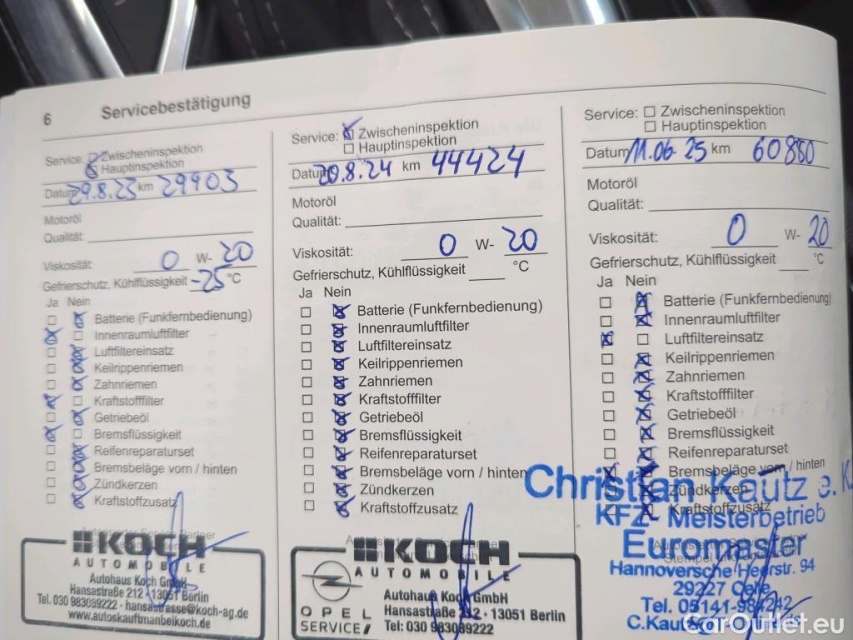 6 Servicebestätigung
Service: Zwischeninspektion
Hauptinspektion
Datum 29.8.23 km 29903
Motoröl
Qualität:
Viskosität: 0 W- 20
Gefrierschutz, Kühlflüssigkeit -25 °C
Ja Nein
Batterie (Funkfernbedienung)
Innenraumluftfilter
Luftfiltereinsatz
Keilrippenriemen
Zahnriemen
Kraftstofffilter
Getriebeöl
Bremsflüssigkeit
Reifenreparaturset
Bremsbeläge vorn / hinten
Zündkerzen
Kraftstoffzusatz
KOCH
AUTOMOBILE
Autohaus Koch GmbH
Hansastraße 212 · 13051 Berlin
Tel. 030 983099222 · hansastrasse@koch-ag.de
www.autoskauftmanbeikoch.de
Service: Zwischeninspektion
Hauptinspektion
Datum 20.8.24 km 44424
Motoröl
Qualität:
Viskosität: 0 W- 20
Gefrierschutz, Kühlflüssigkeit °C
Ja Nein
Batterie (Funkfernbedienung)
Innenraumluftfilter
Luftfiltereinsatz
Keilrippenriemen
Zahnriemen
Kraftstofffilter
Getriebeöl
Bremsflüssigkeit
Reifenreparaturset
Bremsbeläge vorn / hinten
Zündkerzen
Kraftstoffzusatz
KOCH
AUTOMOBILE
OPEL
SERVICE
Autohaus Koch GmbH
Hansastraße 212 · 13051 Berlin
Tel: 030 983099222
Service: Zwischeninspektion
Hauptinspektion
Datum 11.06 25 km 60880
Motoröl
Qualität:
Viskosität: 0 W- 20
Gefrierschutz, Kühlflüssigkeit °C
Ja Nein
Batterie (Funkfernbedienung)
Innenraumluftfilter
Luftfiltereinsatz
Keilrippenriemen
Zahnriemen
Kraftstofffilter
Getriebeöl
Bremsflüssigkeit
Reifenreparaturset
Bremsbeläge vorn / hinten
Zündkerzen
Kraftstoffzusatz
Christian Kautz e. K
KFZ- Meisterbetrieb
Euromaster
Hannoversche Heerstr. 94
29227 Celle
Tel. 05141-
C.Kautz
CarOutlet.eu